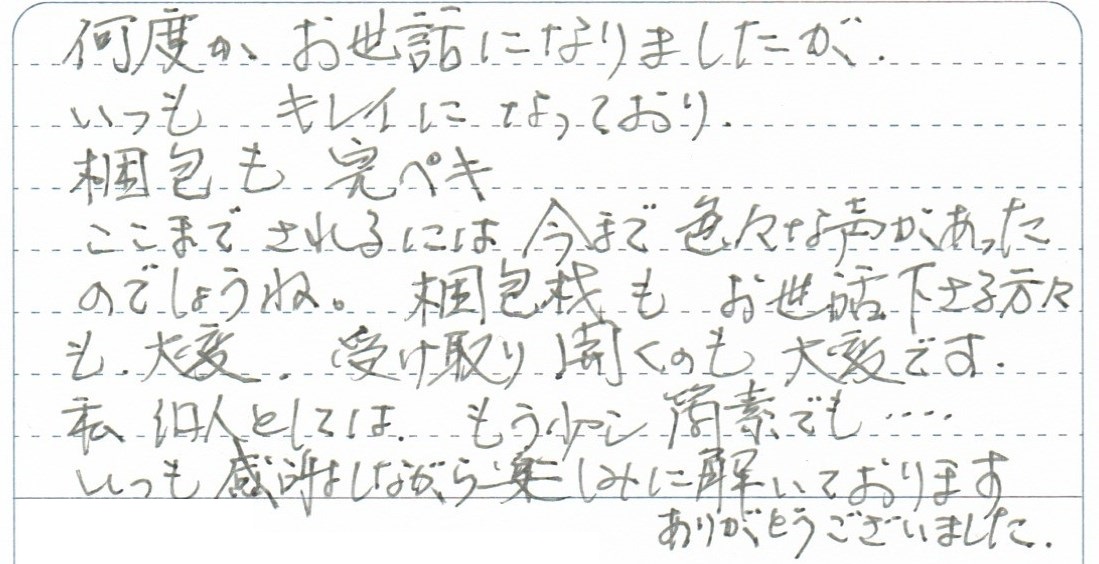 何度か、お世話になりましたが、
いつも キレイに なっており、
梱包も 完ペキ
ここまで されるには 今まで 色々な声があった
のでしょうね。 梱包材も お世話下さる方々
も、大変、受け取り 開くのも 大変です。
私 個人としては、もう少し 簡素でも ‥‥
いつも 感謝しながら 楽しみに 解いております
ありがとうございました。